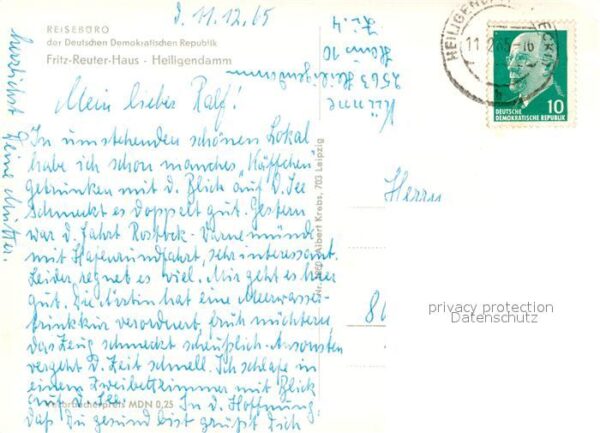 d. 11.12.65
REISEBÜRO
der Deutschen Demokratischen Republik
Fritz-Reuter-Haus - Heiligendamm
Mein lieber Ralf!
In umstehenden schönen Lokal
habe ich schon manches "Käffchen"
getrunken mit d. Blick auf d. See
schmeckt es doppelt gut. Gestern
war d. Fahrt Rostock-Warnemünde
mit Hafenrundfahrt, sehr interessant.
Leider regnet es viel. Mir geht es hier
gut. Die Ärztin hat eine Meerwasser-
trinkkur verordnet, früh nüchtern
das Zeug schmeckt scheußlich. Ansonsten
vergeht d. Zeit schnell. Ich schlafe in
einem Zweibettzimmer mit Blick
auf d. See. In d. Hoffnung,
daß Du gesund bist grüßt Dich
herzlichst Deine Mutter.
Verbraucherpreis MDN 0,25
2563 Heiligendamm
Heim 10
Zi. 4
Albert Krebs, 703 Leipzig
HEILIGEN
11.2.65-16
10
DEUTSCHE
DEMOKRATISCHE REPUBLIK
Herrn
privacy protection
Datenschutz